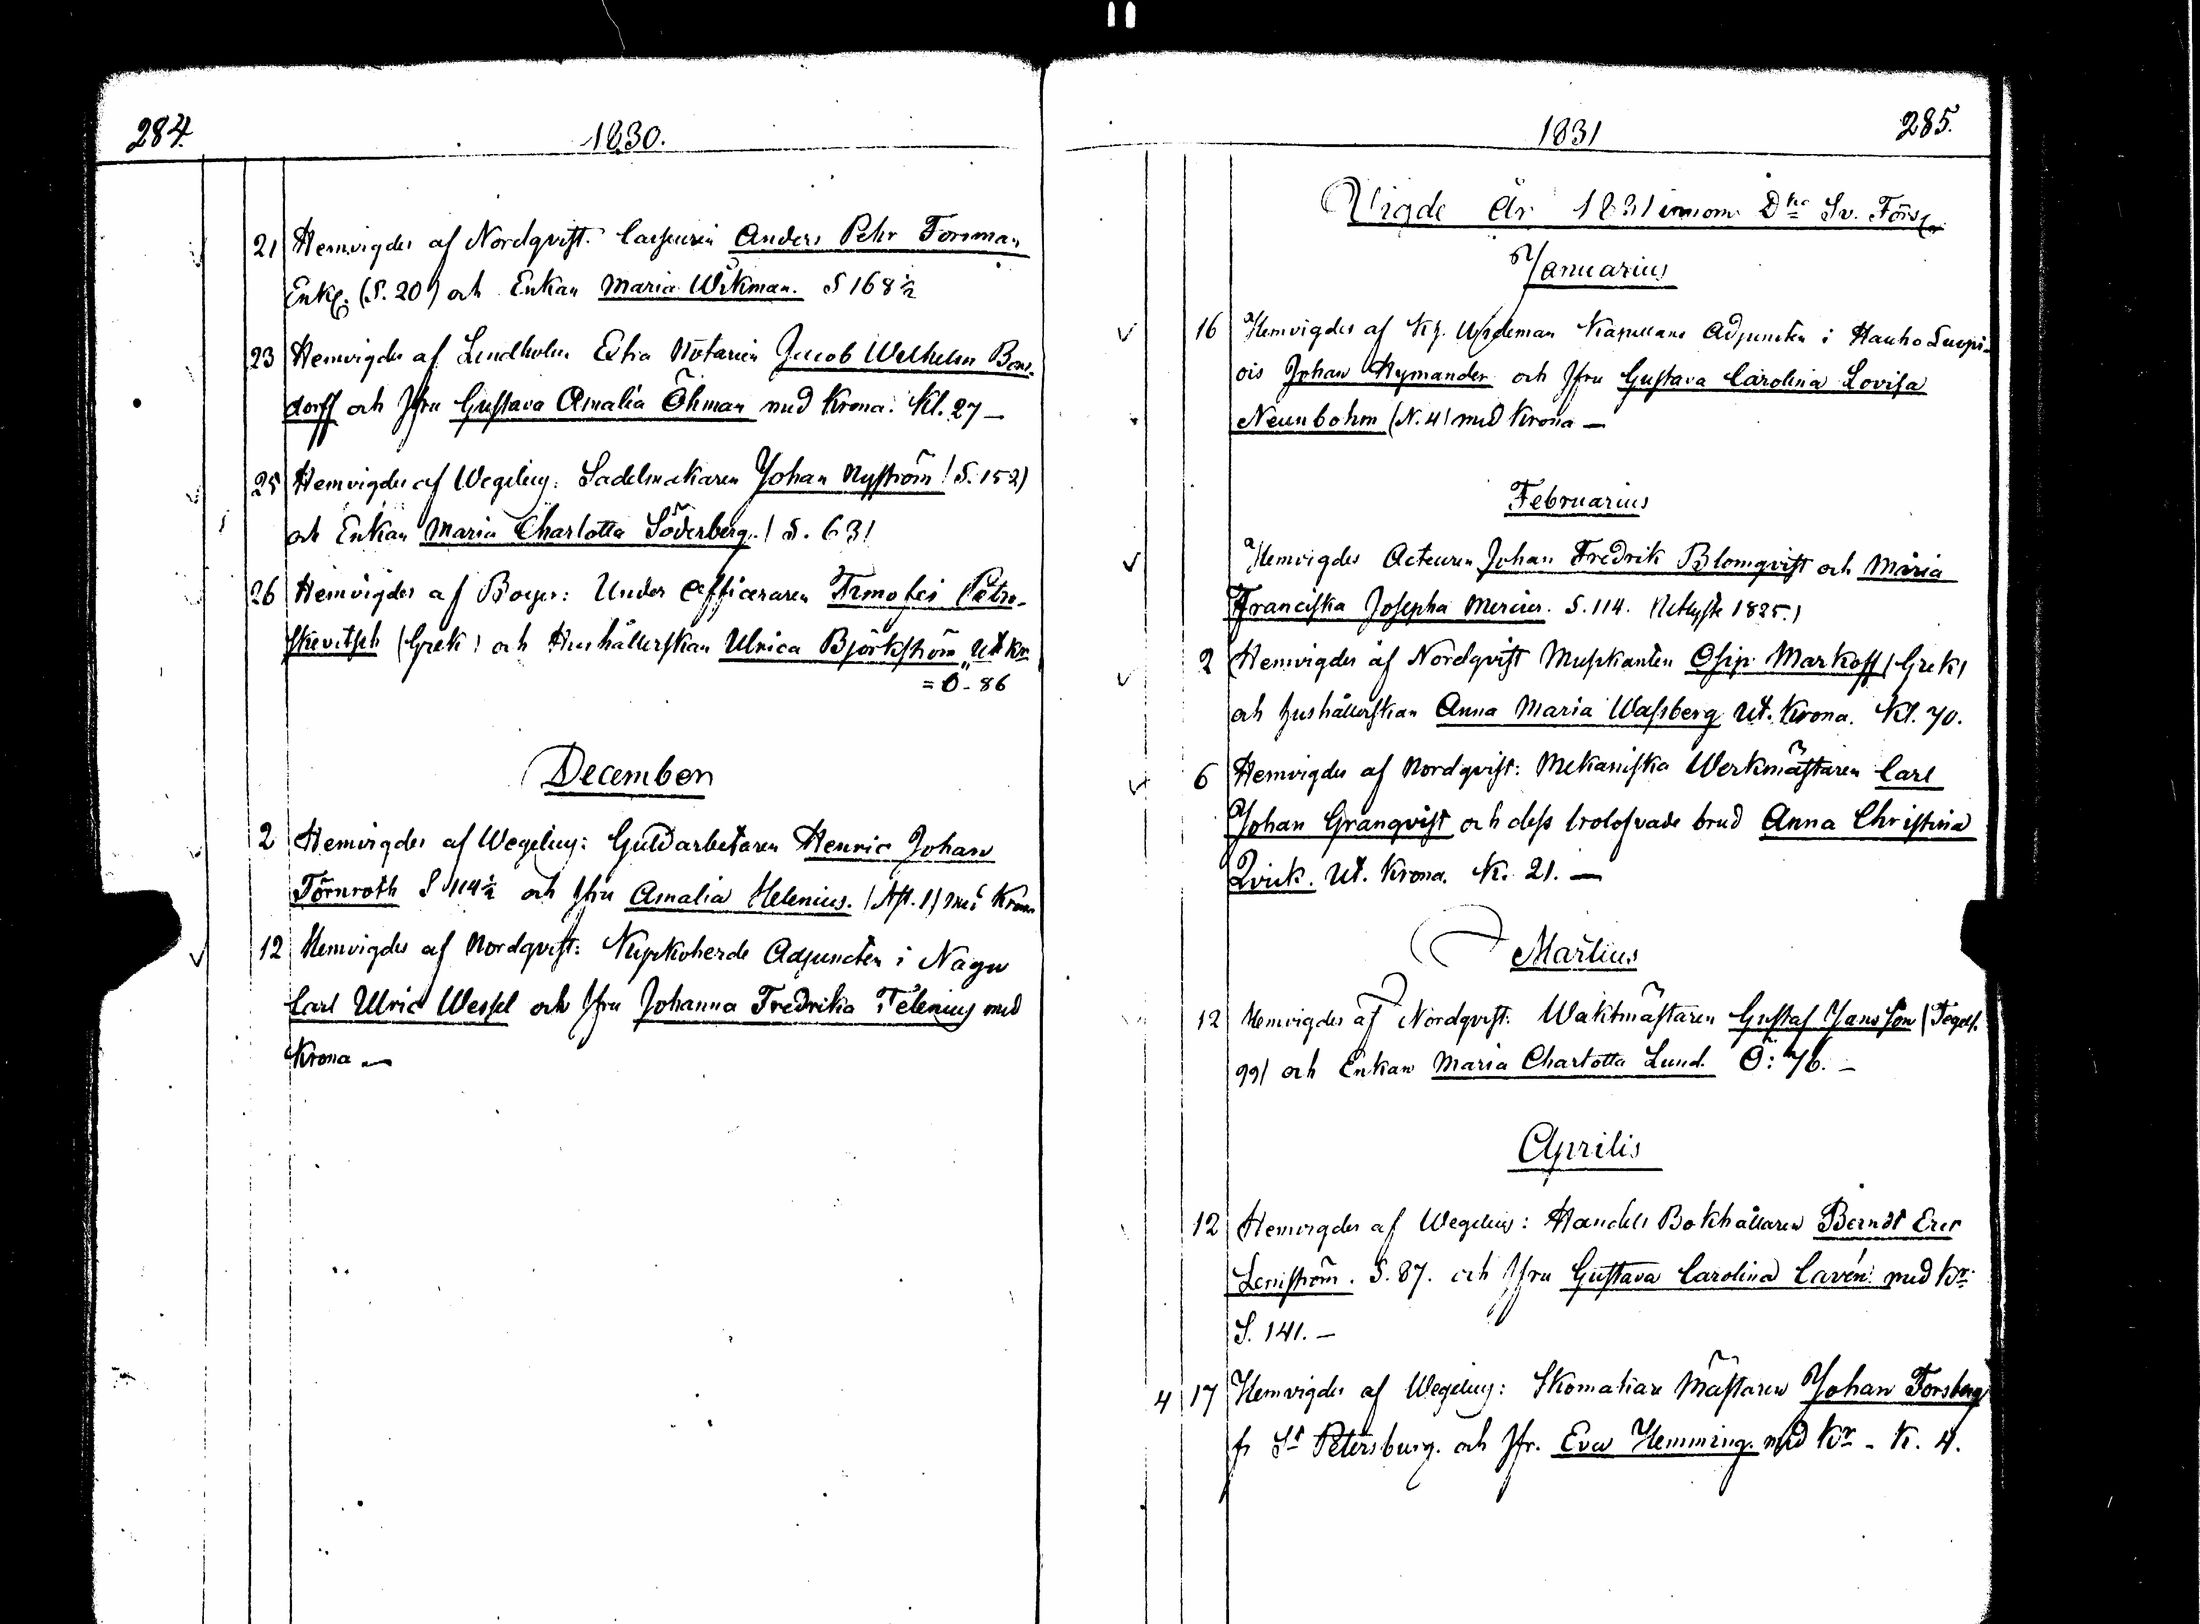 284.
1830.
21 Hemvigdes af Nordqvist. Anders Pehr Forsman
Enkl. (S. 20) och Enkan Maria Wikman. S 168 ½
23 Hemvigdes af Lindholm Extra Notarien Jacob Wilhelm Bons-
dorff och Jfru Gustava Amalia Öhman med Krona. Kl. 27 —
25 Hemvigdes af Wegelius: Sadelmakaren Johan Nyström (S. 152)
och Enkan Maria Charlotta Söderberg. (S. 63)
26 Hemvigdes af Boyer: Under Officeraren Timofei Petro-
skevitsch (Grek) och Hushållerskan Ulrica Björkström, ut Kr.
= Ö - 86
December
2 Hemvigdes af Wegelius: Guldarbetaren Henric Johan
Törnroth S 114 ½ och Jfru Amalia Helenius. med Krona
12 Hemvigdes af Nordqvist: Kyrkoherde Adjuncten i Nagu
Carl Ulric Wessel och Jfru Johanna Fredrika Telenius med
Krona —
1831
285.
Vigde År 1831 innom Dhe Sv. Förs.
Januarius
16 Hemvigdes af Wideman Kapellans Adjuncten i Hauho Luopi-
ois Johan Nymander och Jfru Gustava Carolina Lovisa
Neunbohm (N. 4) med Krona —
Februarius
Hemvigdes Acteuren Johan Fredrik Blomqvist och Maria
Franciska Josepha Mercier. S. 114. (Utlyste 1825.)
2 Hemvigdes af Nordqvist Musikanten Osip Markoff (Grek)
och hushållerskan Anna Maria Wassberg ut. Krona. Kl. 70.
6 Hemvigdes af Nordqvist: Mekaniska Werkmästaren Carl
Johan Granqvist och dess trolofvade brud Anna Christina
Qvick. ut. Krona. K. 21. —
Martius
12 Hemvigdes af Nordqvist. Waktmästaren Gustaf Jansson (Tegels.
99) och Enkan Maria Charlotta Lund. Ö: 76. —
Aprilis
12 Hemvigdes af Wegelius: Handels Bokhållaren Berndt Eric
Lenström. S. 87. och Jfru Gustava Carolina Cavén med Kr.
S. 141. —
4 17 Hemvigdes af Wegelius: Skomakare Mästaren Johan Forsberg
fr St Petersburg. och Jfr. Eva Hemming. med Kr - K. 4.